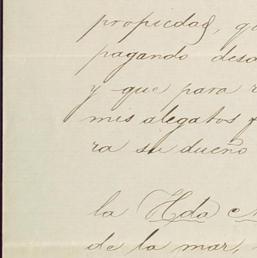 propiedad, qu
pagando desd
y que para r
mis alegatos f
ra su dueño
la Hda
de la mar,